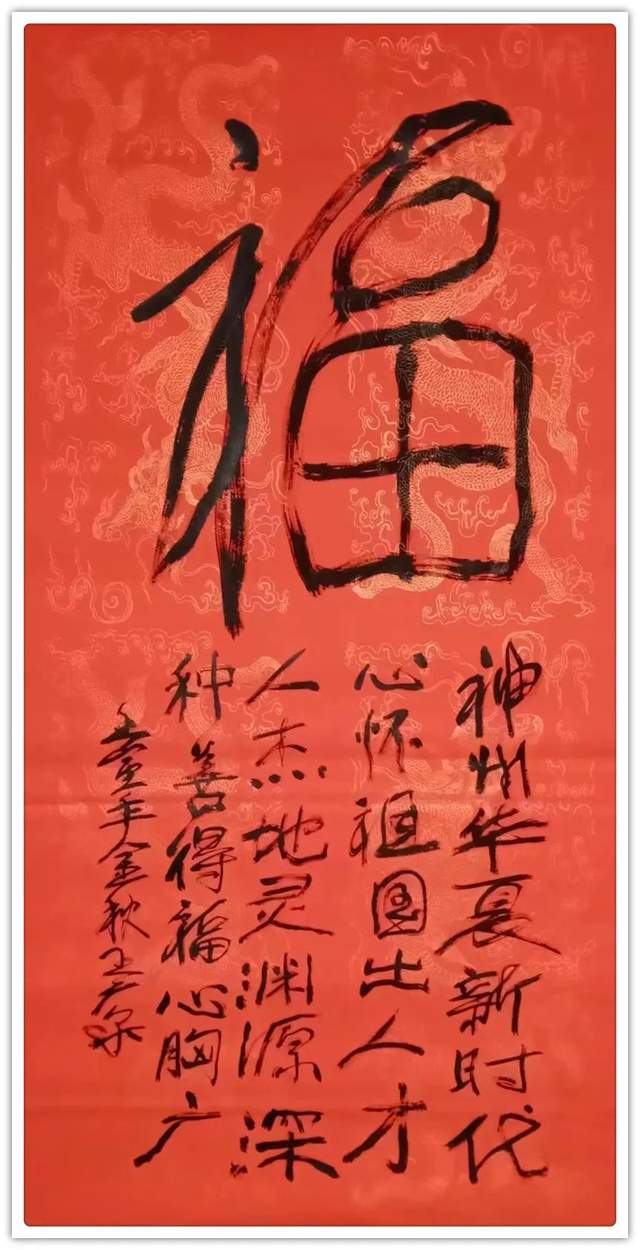 福
神州华夏新时代
心怀祖国出人才
人杰地灵渊源深
种善得福心胸广
壬寅年金秋王广泉